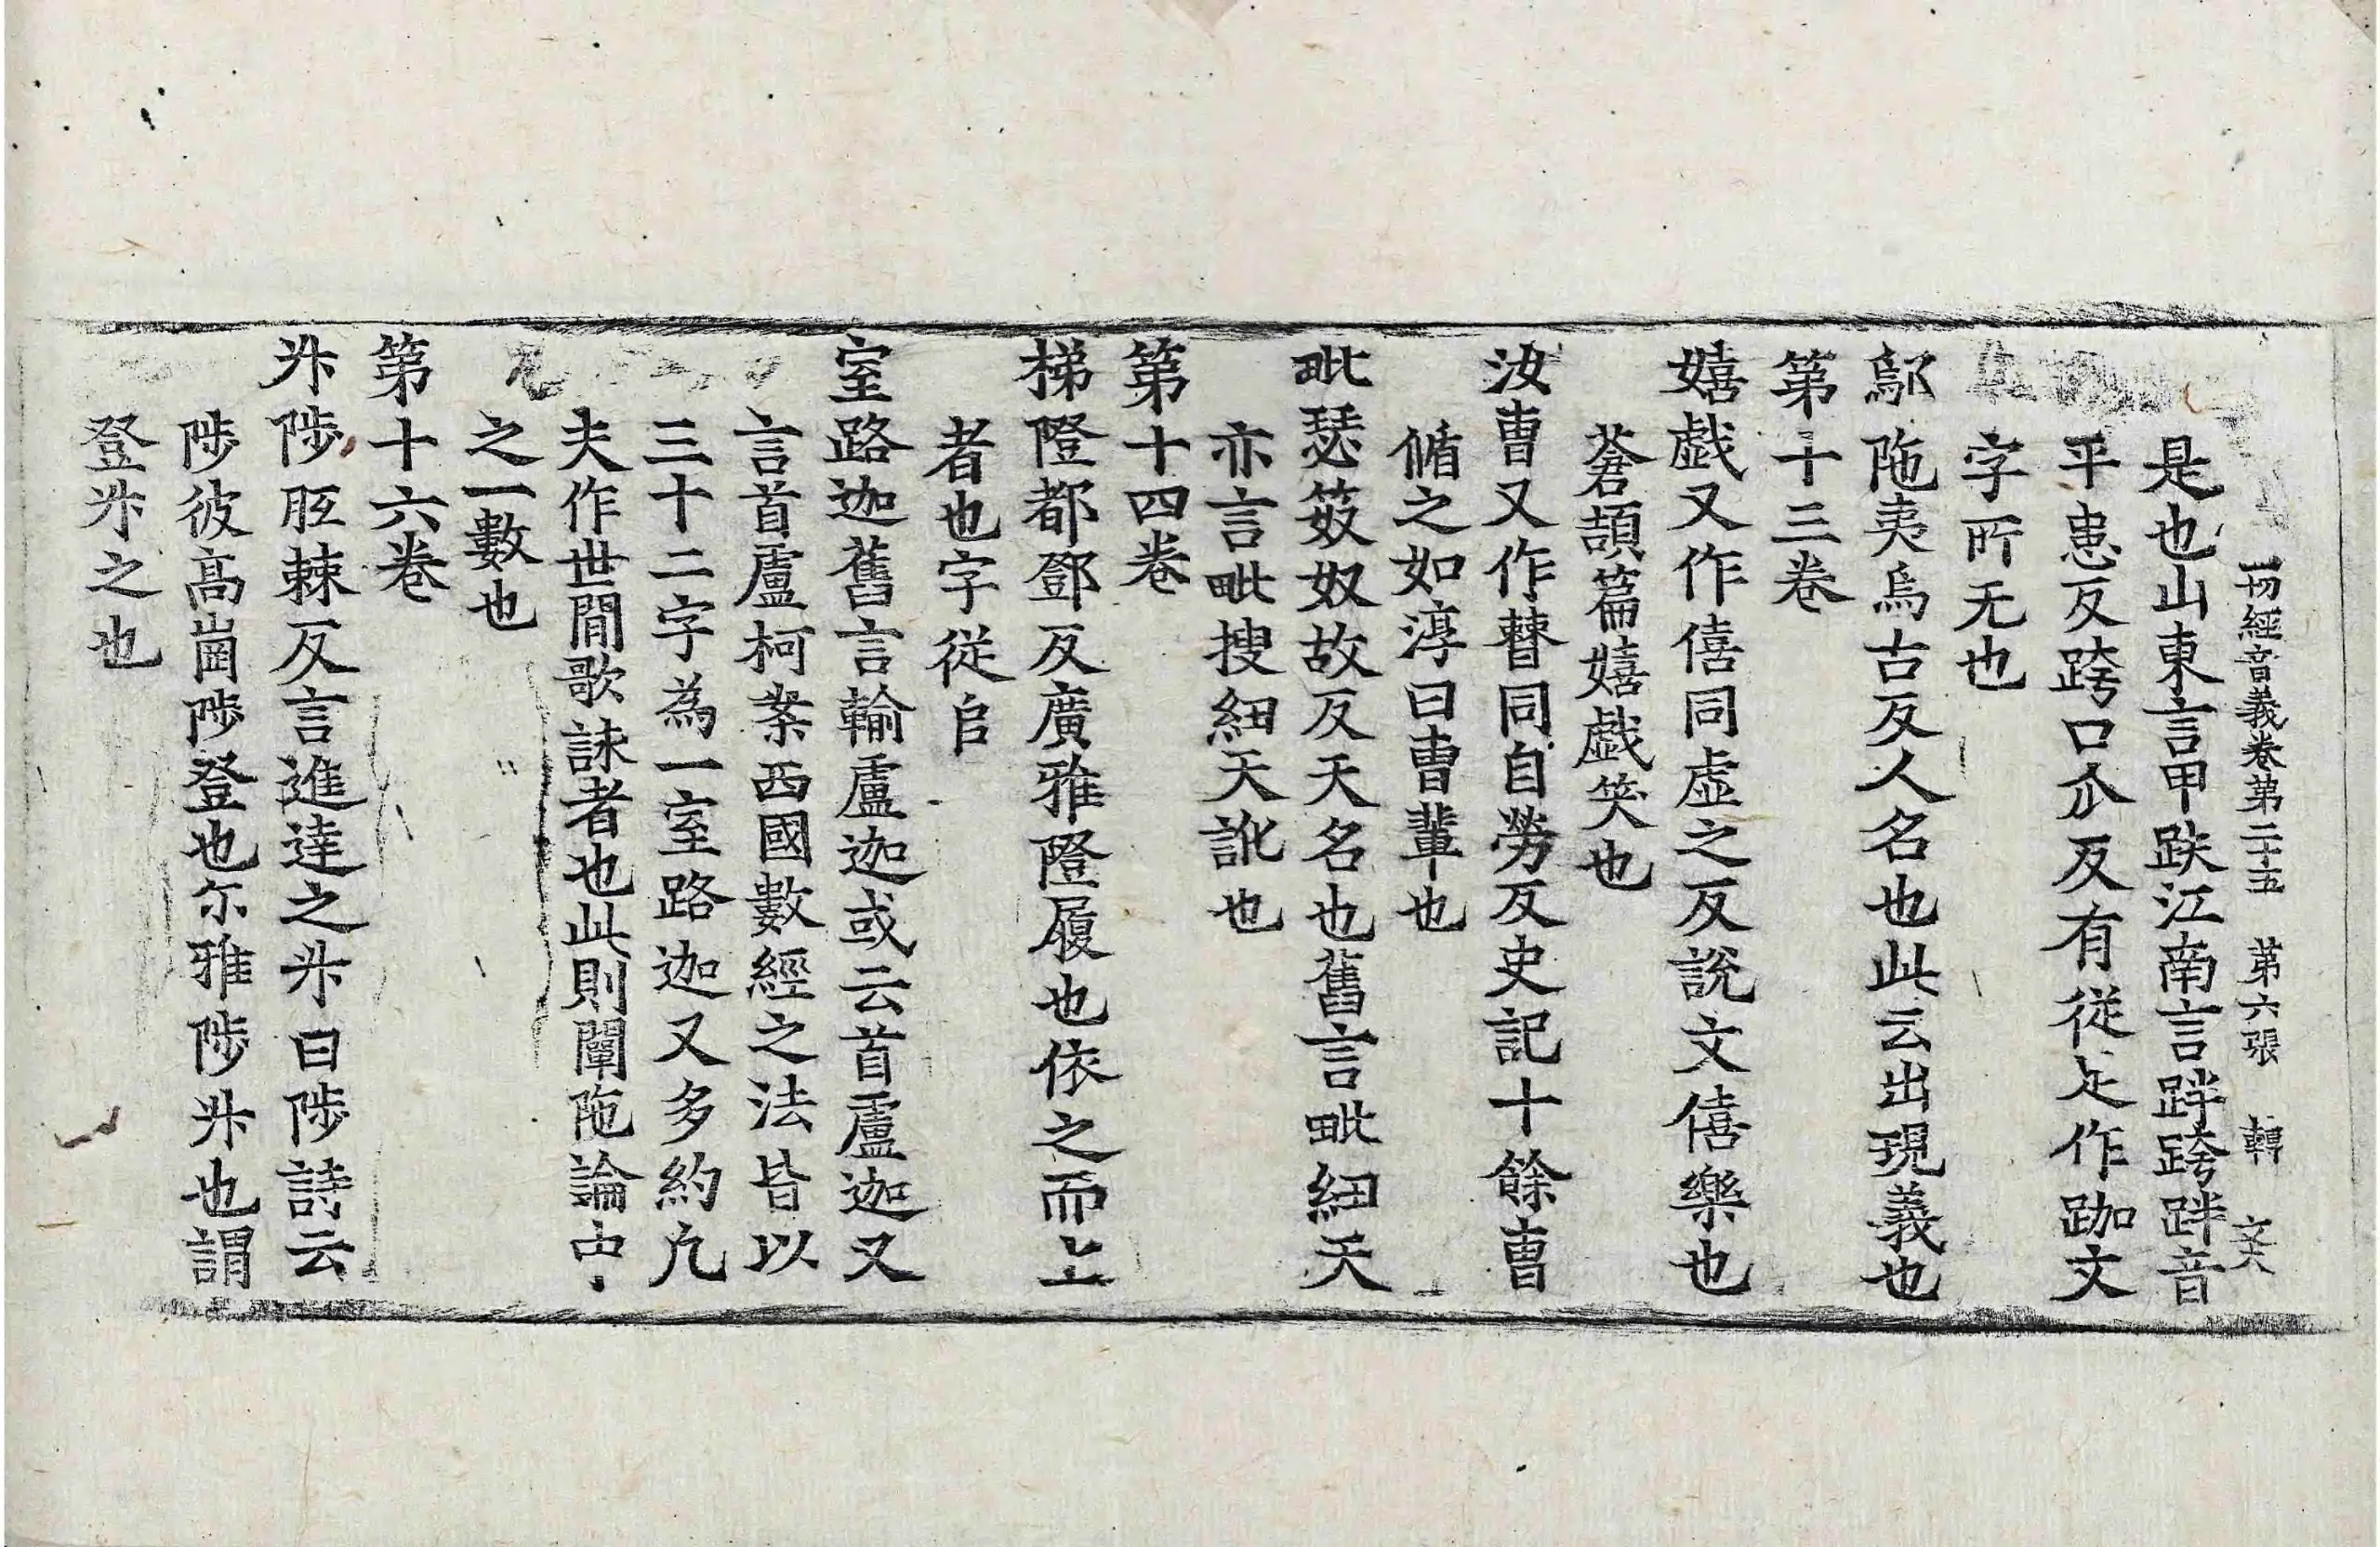 一切經音義卷第二十五 第六張 轉 文大
是也山東言甲趺江南言跘跨跘音
平患反跨口仐反有從足作跏文
字所无也
鄔陁夷烏古反人名也此云出現義也
第十三卷
嬉戯又作僖同虛之反說文僖樂也
蒼頡篇嬉戯笑也
汝曺又作𣍘同自勞反史記十餘曺
偱之如淳曰曺輩也
毗瑟笯奴故反天名也舊言毗紐天
亦言毗搜紐天訛也
第十四卷
梯隥都鄧反廣雅隥履也依之而上
者也字從𨸏
室路迦舊言輸盧迦或云首盧迦又
言首盧柯案西國數經之法皆以
三十二字為一室路迦又多約凢
夫作世間歌詠者也此則闡陁論中
之一數也
第十六卷
升陟𦙄棘反言進達之升曰陟詩云
陟彼髙崗陟登也尓雅陟升也謂
登升之也